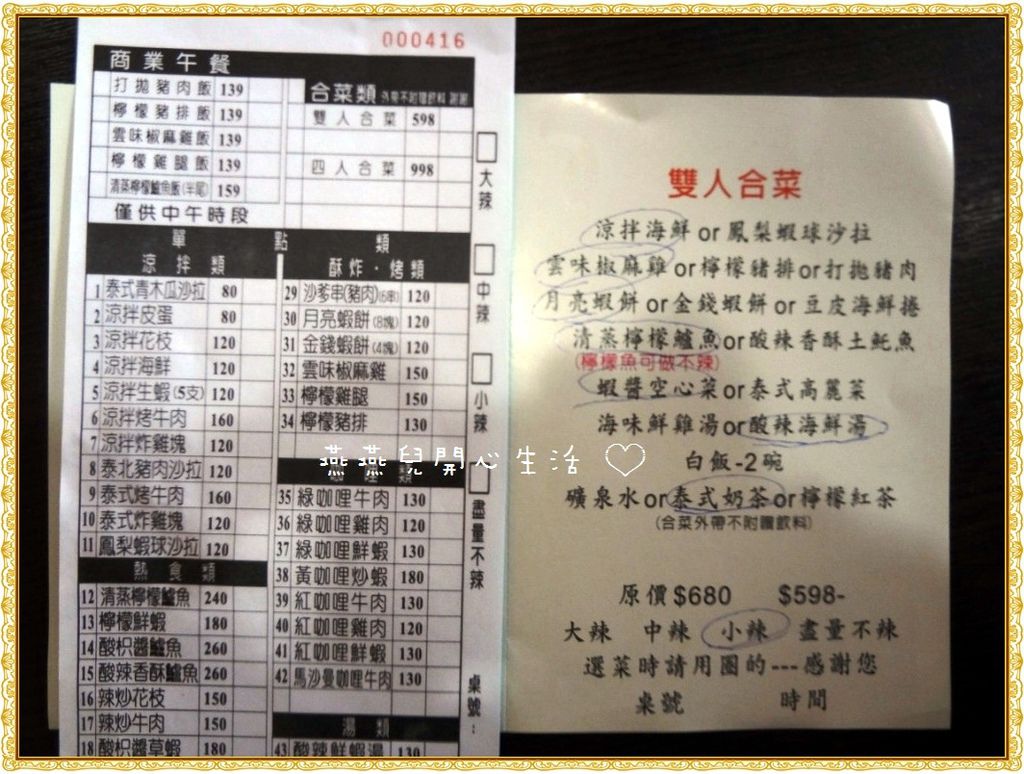 000416
商業午餐
打拋豬肉飯 139
檸檬豬排飯 139
雲味椒麻雞飯 139
檸檬雞腿飯 139
清蒸檸檬鱸魚飯(半尾) 159
僅供中午時段
合菜類 外帶不附贈飲料 謝謝
雙人合菜 598
四人合菜 998
單點類
涼拌類
1 泰式青木瓜沙拉 80
2 涼拌皮蛋 80
3 涼拌花枝 120
4 涼拌海鮮 120
5 涼拌生蝦(5支) 120
6 涼拌烤牛肉 160
7 涼拌炸雞塊 120
8 泰北豬肉沙拉 120
9 泰式烤牛肉 160
10 泰式炸雞塊 120
11 鳳梨蝦球沙拉 120
熱食類
12 清蒸檸檬鱸魚 240
13 檸檬鮮蝦 180
14 酸枳醬鱸魚 260
15 酸辣香酥鱸魚 260
16 辣炒花枝 150
17 辣炒牛肉 150
18 酸枳醬草蝦 180
酥炸・烤類
29 沙爹串(豬肉)(5串) 120
30 月亮蝦餅(8塊) 120
31 金錢蝦餅(4塊) 120
32 雲味椒麻雞 150
33 檸檬雞腿 150
34 檸檬豬排 130
類
35 綠咖哩牛肉 130
36 綠咖哩雞肉 120
37 綠咖哩鮮蝦 130
38 黃咖哩炒蝦 180
39 紅咖哩牛肉 130
40 紅咖哩雞肉 120
41 紅咖哩鮮蝦 130
42 馬沙曼咖哩牛肉 130
湯類
43 酸辣鮮蝦湯 130
大辣
中辣
小辣
盡量不辣
桌號：
燕燕兒開心生活 ♡
雙人合菜
涼拌海鮮or鳳梨蝦球沙拉
雲味椒麻雞or檸檬豬排or打拋豬肉
月亮蝦餅or金錢蝦餅or豆皮海鮮捲
清蒸檸檬鱸魚or酸辣香酥土魠魚
(檸檬魚可做不辣)
蝦醬空心菜or泰式高麗菜
海味鮮雞湯or酸辣海鮮湯
白飯-2碗
礦泉水or泰式奶茶or檸檬紅茶
(合菜外帶不附贈飲料)
原價$680 $598-
大辣 中辣 小辣 盡量不辣
選菜時請用圈的---感謝您
桌號 時間